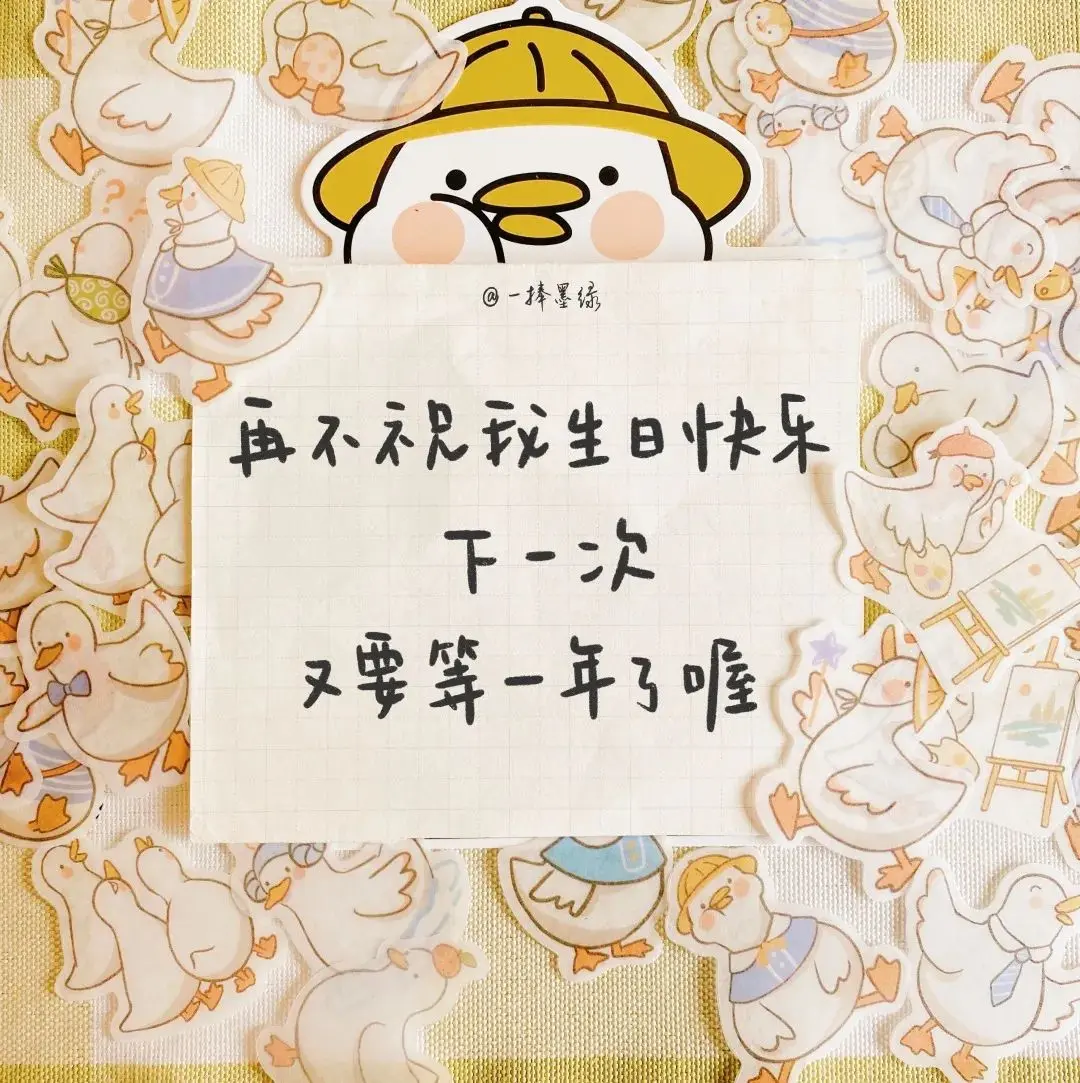 @一捧墨绿
再不祝我生日快乐
下一次
又要等一年了喔
??